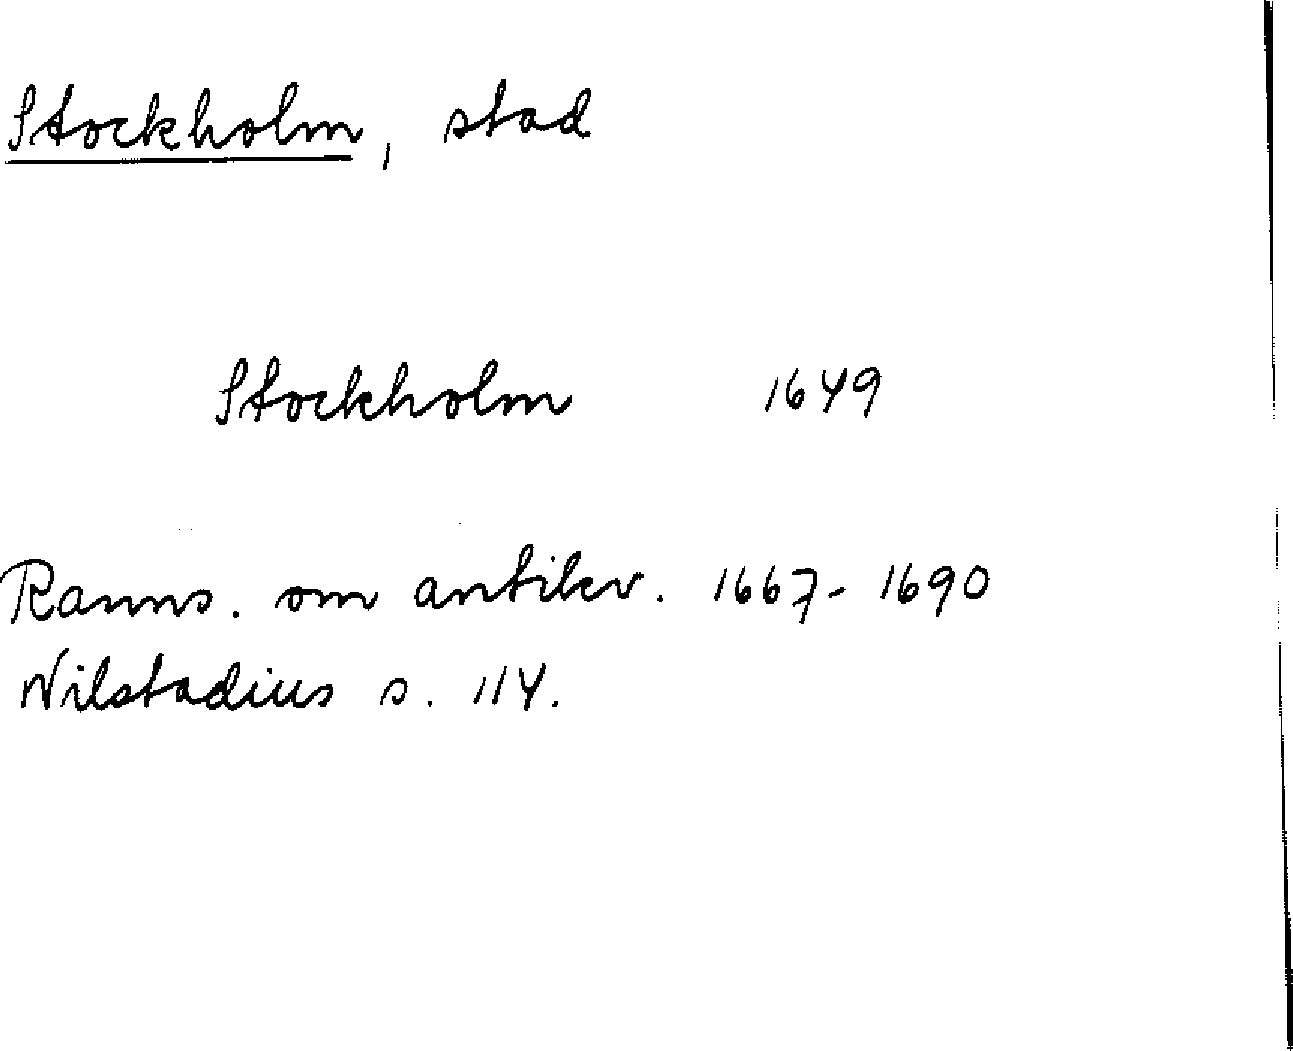 Stockholm, stad
Stockholm 1649
Ranns. om antikv. 1667-1690
Wilstadius s. 114.